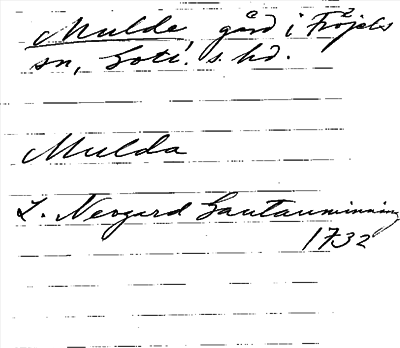 Mulde, gård i Fröjels
sn, Gotl. s. hd.
Mulda
L. Neogard Gautauminning
1732